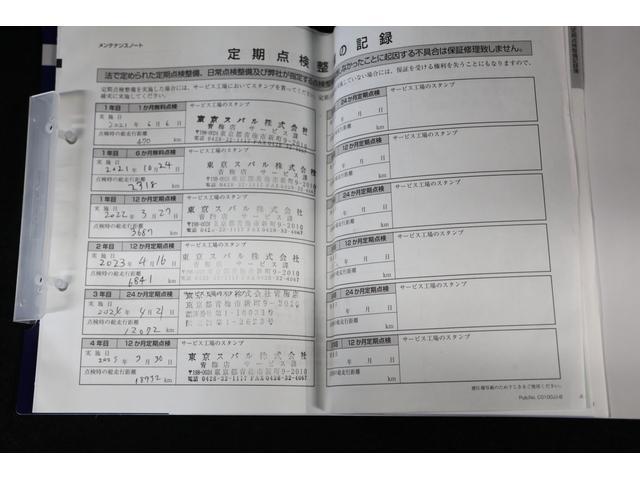 メンテナンスノート
定期点検整
の記録
法で定められた定期点検整備、日常点検整備及び弊社が指定する点検整
しなかったことに起因する不具合は保証修理致しません。
定期点検整備を実施した場合には、サービス工場においてスタンプを貰ってください
確実に実施してください。
1年目 1か月無料点検
サービス工場のスタンプ
実施日
2021年 6月 6日
点検時の総走行距離
470 km
東京スバル株式会社
青梅店 サービス課
〒198-0024 東京都青梅市新町9-2010
電話 0428-32-1117 FAX0428-32-4067
1年目 6か月無料点検
サービス工場のスタンプ
実施日
2021年 10月 24日
点検時の総走行距離
2318 km
東京スバル株式会社
青梅店 サービス課
〒198-0024 東京都青梅市新町9-2010
電話 0428-32-1117 FAX0428-32-4067
1年目 12か月定期点検
サービス工場のスタンプ
実施日
2022年 3月 27日
点検時の総走行距離
3687 km
東京スバル株式会社
青梅店 サービス課
〒198-0024 東京都青梅市新町9-2010
電話 0428-32-1117 FAX0428-32-4067
2年目 12か月定期点検
サービス工場のスタンプ
実施日
2023年 4月 16日
点検時の総走行距離
6841 km
東京スバル株式会社
青梅店 サービス課
〒198-0024 東京都青梅市新町9-2010
電話 0428-32-1117 FAX0428-32-4067
3年目 24か月定期点検
サービス工場のスタンプ
実施日
点検時の総走行距離
12092 km
東京スバル株式会社青梅店
東京都青梅市新町9-2010
4年目 12か月定期点検
サービス工場のスタンプ
実施日
2025年 3月 30日
点検時の総走行距離
18932 km
東京スバル株式会社
青梅店 サービス課
〒198-0024 東京都青梅市新町9-2010
電話 0428-32-1117 FAX0428-32-4067
24か月定期点検
サービス工場のスタンプ
年 月 日
時の総走行距離
km
12か月定期点検
サービス工場のスタンプ
年 月 日
km
24か月定期点検
サービス工場のスタンプ
年 月 日
km
12か月定期点検
サービス工場のスタンプ
年 月 日
km
24か月定期点検
サービス工場のスタンプ
年 月 日
km
12か月定期点検
サービス工場のスタンプ
年 月 日
km